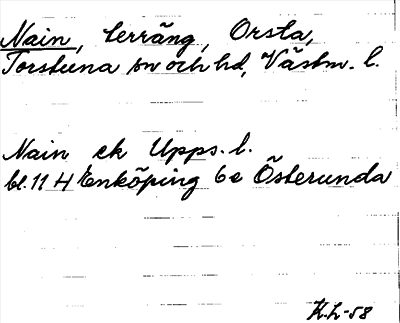 Nain, terräng, Orsta,
Torstuna sn och hd, Västm. l.
Nain ek Upps. l.
bl. 11 H Enköping 6 e Österunda
K.L-58